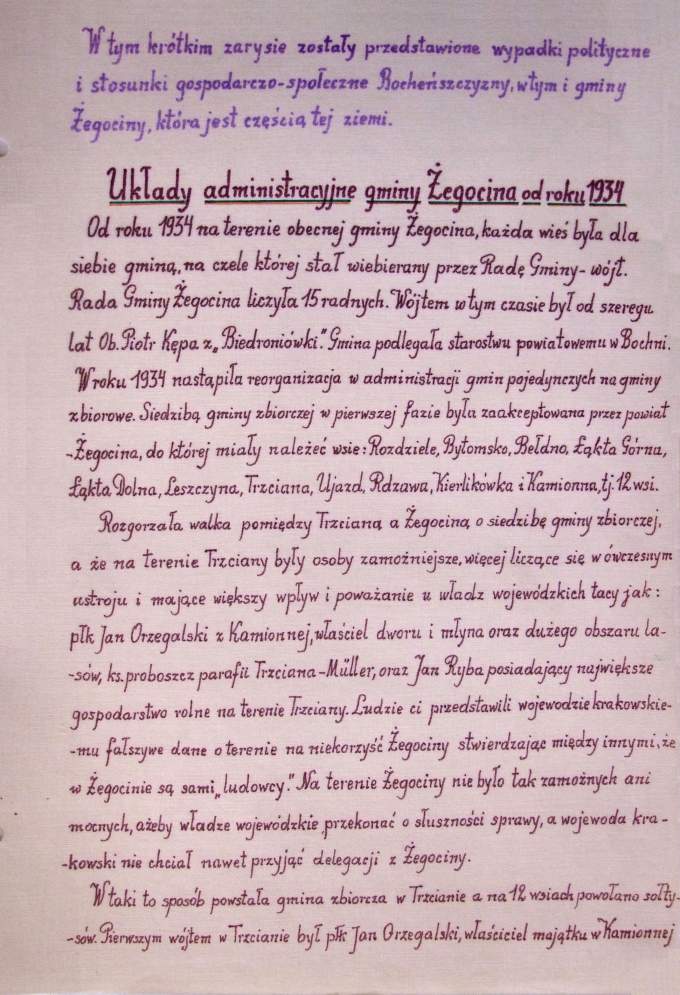 W tym krótkim zarysie zostały przedstawione wypadki polityczne
i stosunki gospodarczo-społeczne Bocheńszczyzny, w tym i gminy
Żegociny, która jest częścią tej ziemi.
Układy administracyjne gminy Żegocina od roku 1934
Od roku 1934 na terenie obecnej gminy Żegocina, każda wieś była dla
siebie gminą, na czele której stał wiebierany przez Radę Gminy- wójt.
Rada Gminy Żegocina liczyła 15 radnych. Wójtem w tym czasie był od szeregu
lat Ob. Piotr Kępa z „Biedroniówki". Gmina podlegała starostwu powiatowemu w Bochni.
W roku 1934 nastąpiła reorganizacja w administracji gmin pojedynczych na gminy
zbiorowe. Siedzibą gminy zbiorczej w pierwszej fazie była zaakceptowana przez powiat
-Żegocina, do której miały należeć wsie: Rozdziele, Bytomsko, Bełdno, Łąkta Górna,
Łąkta Dolna, Leszczyna, Trzciana, Ujazd, Rdzawa, Kierlikówka i Kamionna, tj. 12 wsi.
Rozgorzała walka pomiędzy Trzcianą a Żegociną o siedzibę gminy zbiorczej,
a że na terenie Trzciany były osoby zamożniejsze, więcej liczące się w ówczesnym
ustroju i mające większy wpływ i poważanie u władz wojewódzkich tacy jak:
płk Jan Orzegalski z Kamionnej, właściel dworu i młyna oraz dużego obszaru la-
-sów, ks. proboszcz parafii Trzciana-Müller, oraz Jan Ryba posiadający największe
gospodarstwo rolne na terenie Trzciany. Ludzie ci przedstawili wojewodzie krakowskie-
-mu fałszywe dane o terenie na niekorzyść Żegociny stwierdzając między innymi, że
w Żegocinie są sami „ludowcy". Na terenie Żegociny nie było tak zamożnych ani
mocnych, ażeby władze wojewódzkie przekonać o słuszności sprawy, a wojewoda kra-
-kowski nie chciał nawet przyjąć delegacji z Żegociny.
W taki to sposób powstała gmina zbiorcza w Trzcianie a na 12 wsiach powołano sołty-
-sów. Pierwszym wójtem w Trzcianie był płk Jan Orzegalski, właściciel majątku w Kamionnej